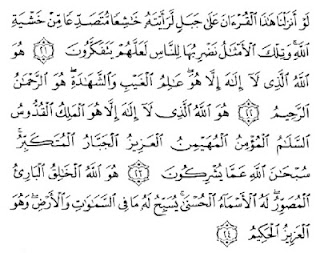 لَوْ أَنزَلْنَا هَٰذَا الْقُرْءَانَ عَلَىٰ جَبَلٍ لَّرَأَيْتَهُ خَٰشِعًا مُّتَصَدِّعًا مِّنْ خَشْيَةِ
اللَّهِ وَتِلْكَ الْأَمْثَٰلُ نَضْرِبُهَا لِلنَّاسِ لَعَلَّهُمْ يَتَفَكَّرُونَ ٢١
هُوَ اللَّهُ الَّذِى لَا إِلَٰهَ إِلَّا هُوَ عَٰلِمُ الْغَيْبِ وَالشَّهَٰدَةِ هُوَ الرَّحْمَٰنُ
الرَّحِيمُ ٢٢ هُوَ اللَّهُ الَّذِى لَا إِلَٰهَ إِلَّا هُوَ الْمَلِكُ الْقُدُّوسُ
السَّلَٰمُ الْمُؤْمِنُ الْمُهَيْمِنُ الْعَزِيزُ الْجَبَّارُ الْمُتَكَبِّرُ
سُبْحَٰنَ اللَّهِ عَمَّا يُشْرِكُونَ ٢٣ هُوَ اللَّهُ الْخَٰلِقُ الْبَارِئُ
الْمُصَوِّرُ لَهُ الْأَسْمَاءُ الْحُسْنَىٰ يُسَبِّحُ لَهُ مَا فِى السَّمَٰوَٰتِ وَالْأَرْضِ وَهُوَ
الْعَزِيزُ الْحَكِيمُ ٢٤